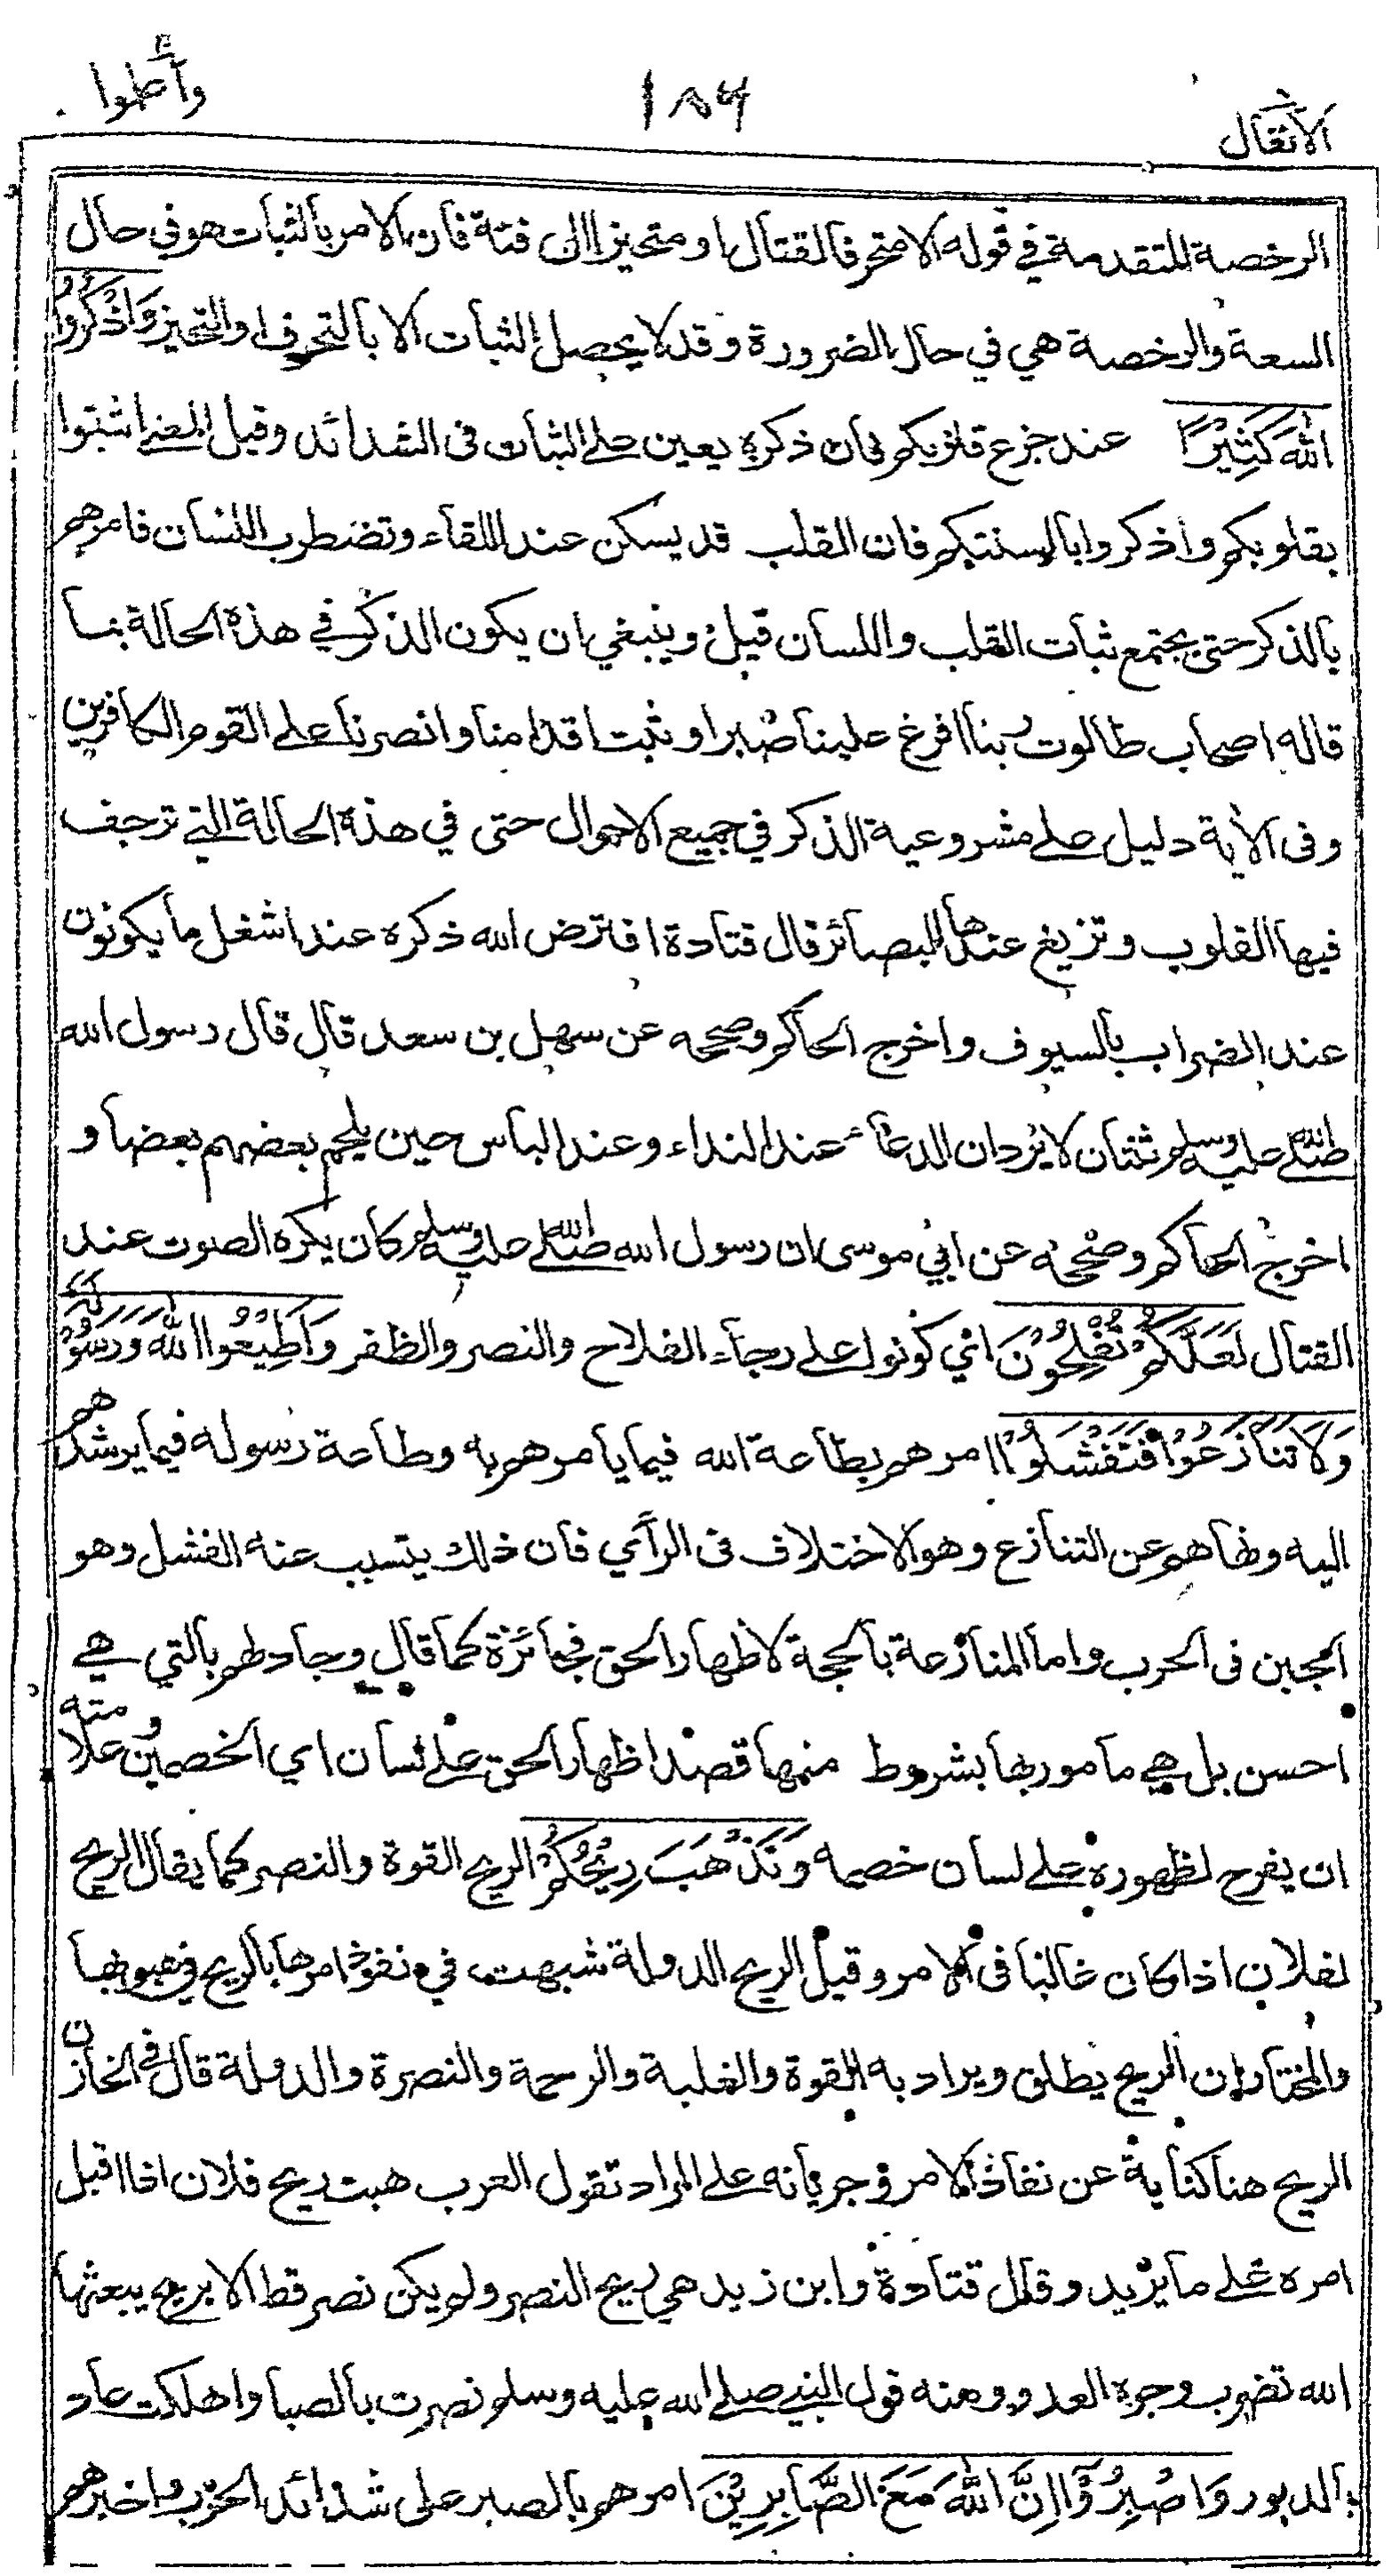 الانفال
١٨٦
واعلموا
الرخصة المتقدمة في قوله الا متحرفا لقتال او متحيزا الى فئة فان الامر بالثبات هو في حال
السعة والرخصة هي في حال الضرورة وقد لا يحصل الثبات الا بالتحرف والتحيز وَاذْكُرُوا
اللّٰهَ كَثِيْرًا عند جزع قلوبكم فان ذكره يعين على الثبات فى الشدائد وقيل المعنى اثبتوا
بقلوبكم واذكروا بالسنتكم فان القلب قد يسكن عند اللقاء وتضطرب اللسان فامرهم
بالذكر حتى يجتمع ثبات القلب واللسان قيل وينبغي ان يكون الذكر في هذه الحالة بما
قاله اصحاب طالوت ربنا افرغ علينا صبرا وثبت اقدامنا وانصرنا على القوم الكافرين
وفى الاية دليل على مشروعية الذكر في جميع الاحوال حتى في هذه الحالة التي ترجف
فيها القلوب وتزيغ عندها البصائر قال قتادة افترض الله ذكره عند اشغل ما يكونون
عند الضراب بالسيوف واخرج الحاكم وصححه عن سهل بن سعد قال قال رسول الله
صلى الله عليه وسلم ثنتان لا يردان الدعاء عند النداء وعند الباس حين يلحم بعضهم بعضا و
اخرج الحاكم وصححه عن ابي موسى ان رسول الله صلى الله عليه وسلم كان يكره الصوت عند
القتال لَعَلَّكُمْ تُفْلِحُوْنَ اي كونوا على رجاء الفلاح والنصر والظفر وَاَطِيْعُوا اللّٰهَ وَرَسُوْلَهُ
وَلَا تَنَازَعُوْا فَتَفْشَلُوْا امرهم بطاعة الله فيما يامرهم به وطاعة رسوله فيما يرشدهم
اليه ونهاهم عن التنازع وهو الاختلاف فى الرأي فان ذلك يتسبب عنه الفشل وهو
الجبن فى الحرب واما المنازعة بالحجة لاظهار الحق فجائزة كما قال وجادلهم بالتي هي
احسن بل هي مامور بها بشروط منها قصد اظهار الحق على لسان اي الخصمين وعلامته
ان يفرح لظهوره على لسان خصيمه وَتَذْهَبَ رِيْحُكُمْ الريح القوة والنصر كما يقال الريح
لفلان اذا كان غالبا فى الامر وقيل الريح الدولة شبهت في نفوذ امرها بالريح في هبوبها
والمختار ان الريح يطلق ويراد به القوة والغلبة والرحمة والنصرة والدولة قال في الخازن
الريح هنا كناية عن نفاذ الامر وجريانه على المراد تقول العرب هبت ريح فلان اذا اقبل
امره على ما يريد وقال قتادة وابن زيد هي ريح النصر ولم يكن نصر قط الا بريح يبعثها
الله تضرب وجوه العدو ومنه قول النبي صلى الله عليه وسلم نصرت بالصبا واهلكت عاد
بالدبور وَاصْبِرُوْا اِنَّ اللّٰهَ مَعَ الصَّابِرِيْنَ امرهم بالصبر على شدائد الحرب واخبرهم